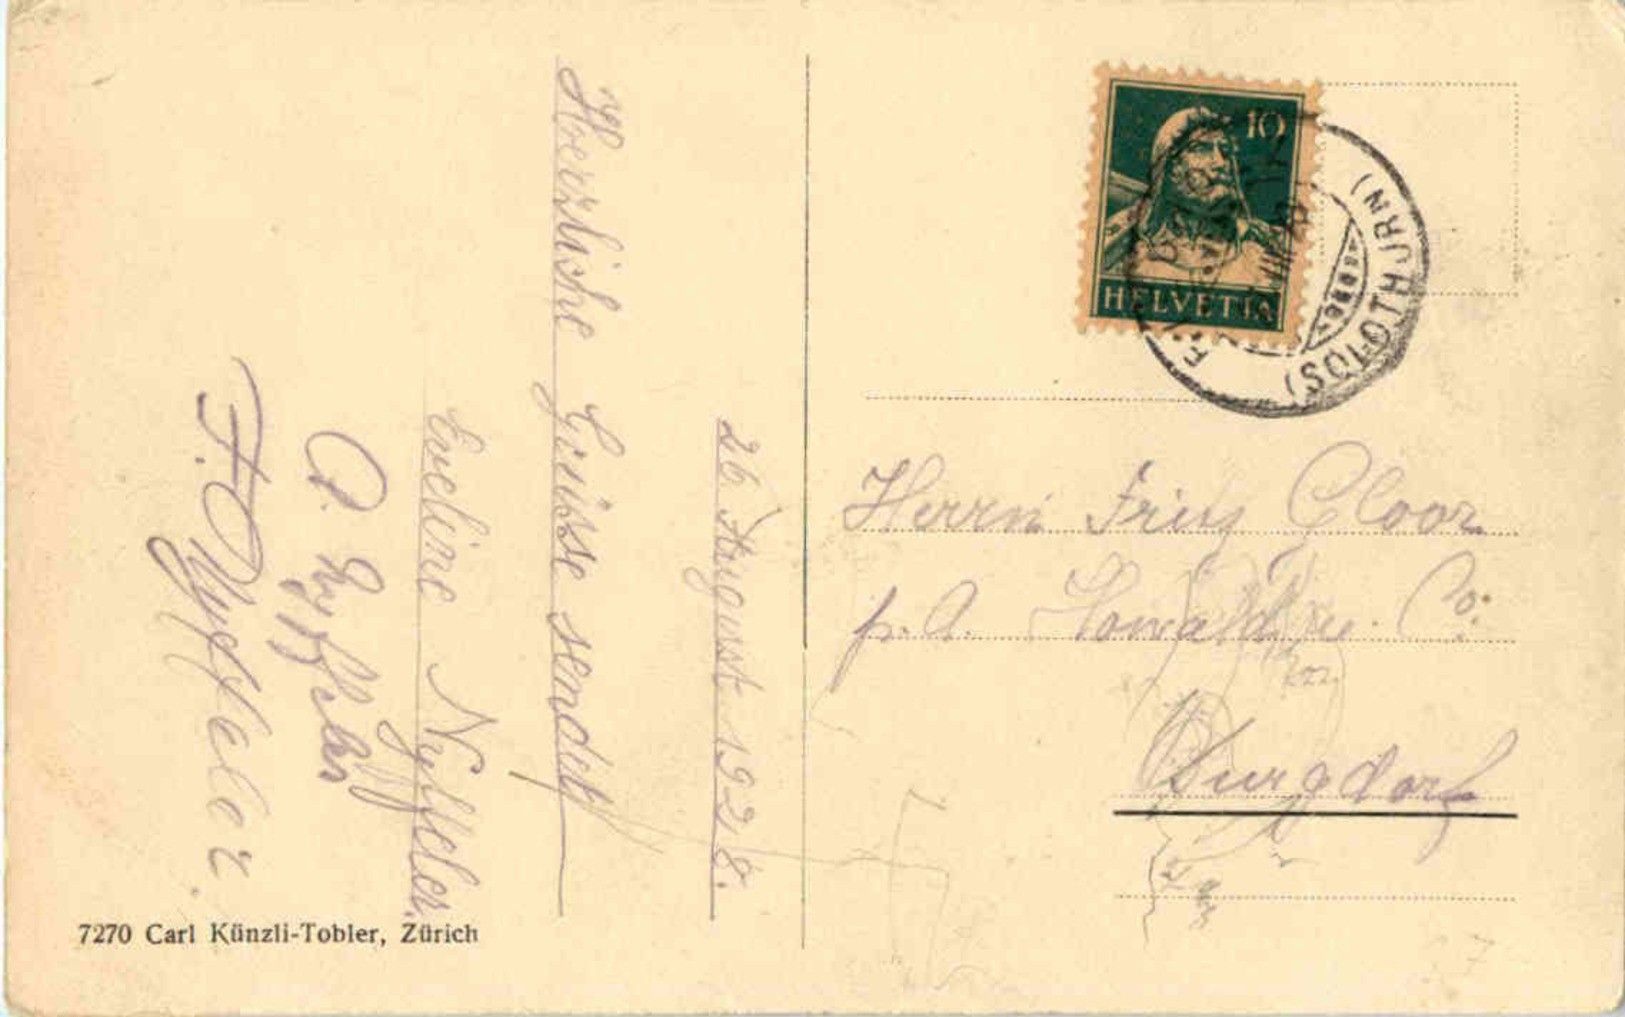 26. August 1928.
Herzliche Grüsse sendet
Eveline Nyffeler.
O. Nyffeler
F. Nyffeler.
7270 Carl Künzli-Tobler, Zürich
10
HELVETIA
(SOLOTHURN)
Herrn Fritz Cloor
p. A. Howald &. Co.
Burgdorf